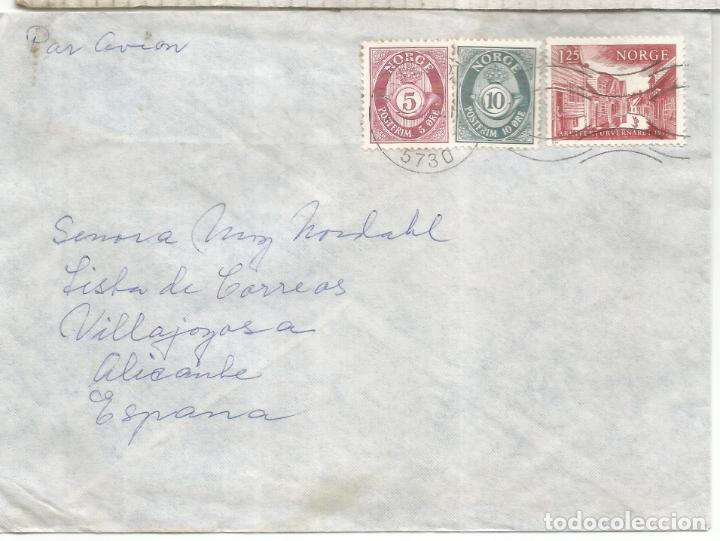 Par avion
NORGE
5
POSTFRIM 5 ØRE
NORGE
10
POSTFRIM 10 ØRE
1.25 NORGE
5730
Senora Moy Nordahl
Lista de Correos
Villajoyosa
Alicante
Espana
todocoleccion